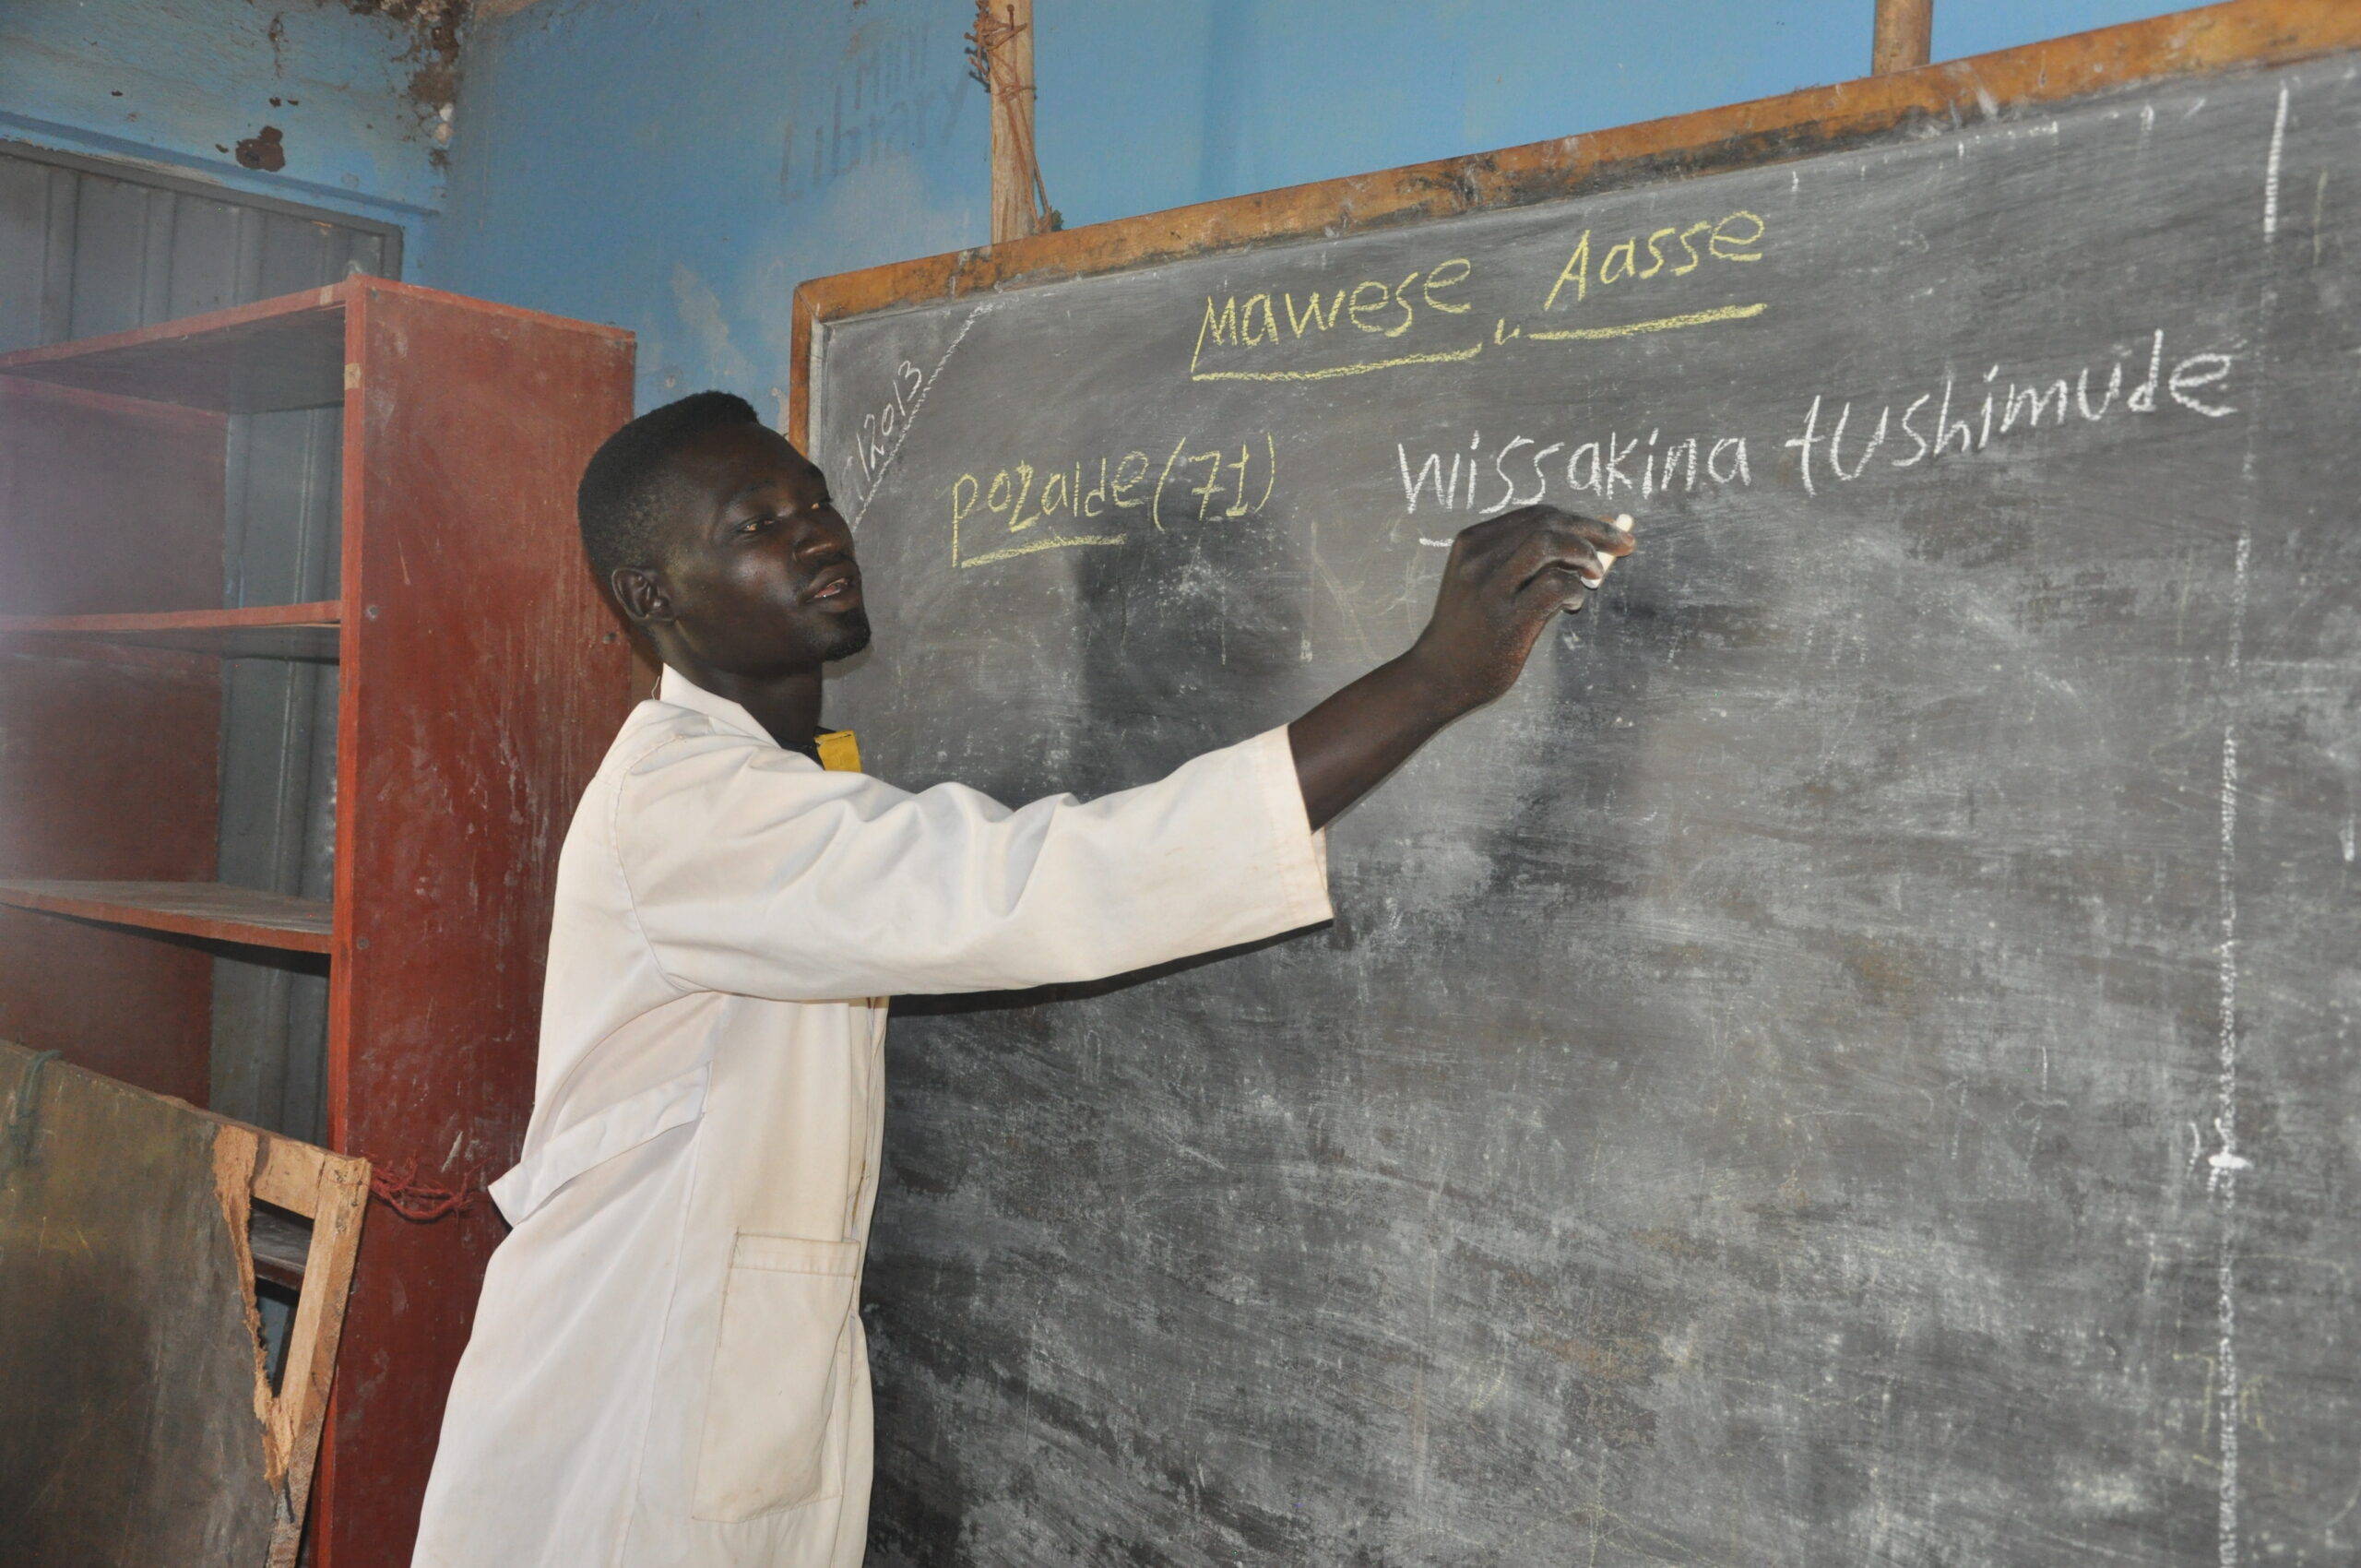 Mini
Library
Mawese " Aasse
12013
pozalde (71)
wissakina tushimude